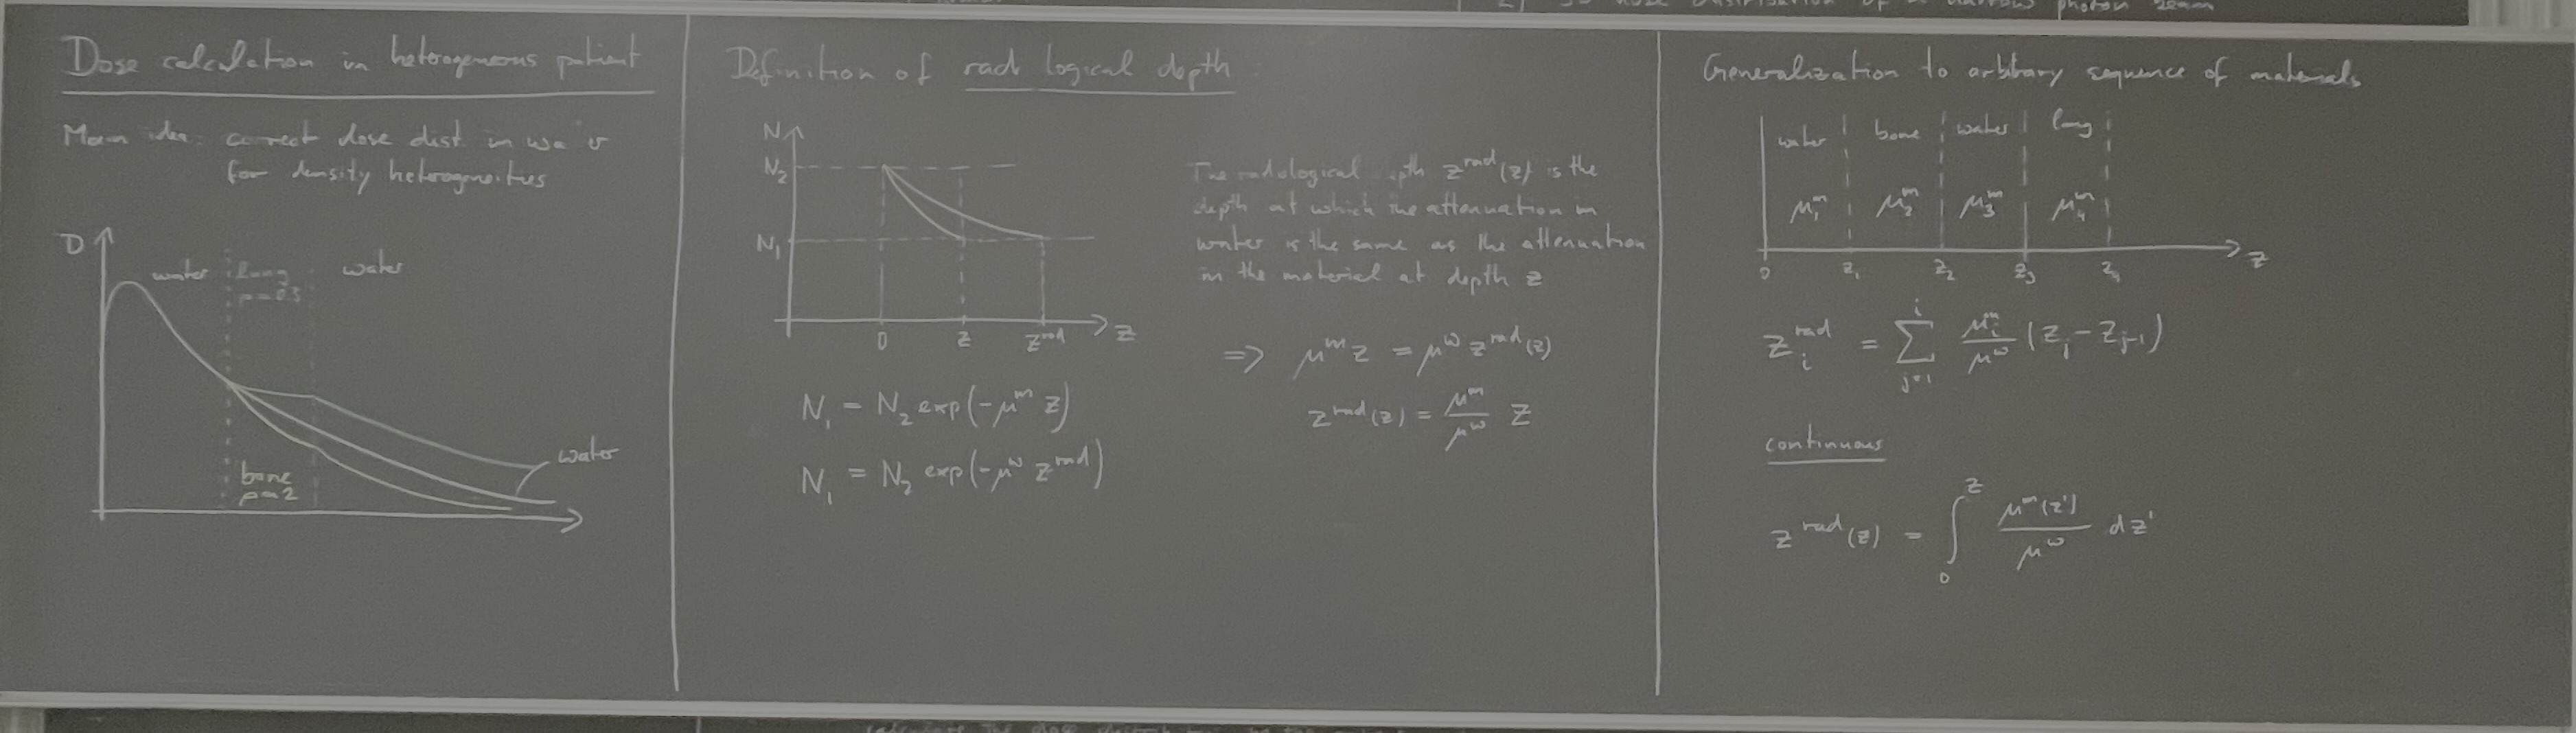 photon beam
Dose calculation in heterogeneous patient
Main idea: correct dose dist. in
for density heterogeneities
D
water
lung
ρ=0.3
water
bone
ρ=2
water
Definition of rad logical depth
N
N₂
N₁
0
z
z^rad
z
N₁ = N₂ exp(-μ^m z)
N₁ = N₂ exp(-μ^w z^rad)
The radiological depth z^rad(z) is the
depth at which the attenuation in
water is the same as the attenuation
in the material at depth z
=> μ^m z = μ^w z^rad(z)
z^rad(z) = μ^m / μ^w z
Generalization to arbitrary sequence of materials
water bone water lung
μ₁^m μ₂^m μ₃^m μ₄^m
0 z₁ z₂ z₃ z₄ z
z_i^rad = Σ_{j=1}^{i} μ_i^m / μ^w (z_j - z_{j-1})
continuous
z^rad(z) = ∫_0^z μ^m(z') / μ^w dz'